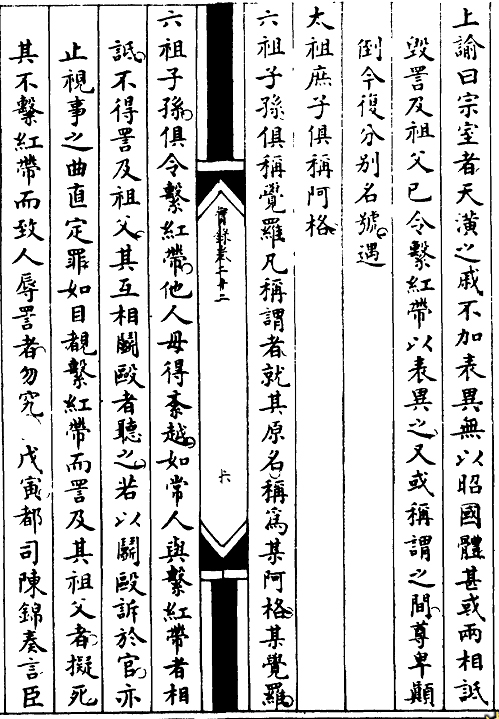 上諭曰宗室者天潢之戚不加表異無以昭國體甚或兩相詆
毀詈及祖父已令繫紅帶以表異之又或稱謂之間尊卑顛
倒今復分別名號遇
太祖庶子俱稱阿格
六祖子孫俱稱覺羅凡稱謂者就其原名稱爲某阿格某覺羅
實錄卷二十二
六
六祖子孫俱令繫紅帶他人毋得紊越如常人與繫紅帶者相
詆不得詈及祖父其互相鬭毆者聽之若以鬭毆訴於官亦
止視事之曲直定罪如目覩繫紅帶而詈及其祖父者擬死
其不繫紅帶而致人辱詈者勿究戊寅都司陳錦奏言臣